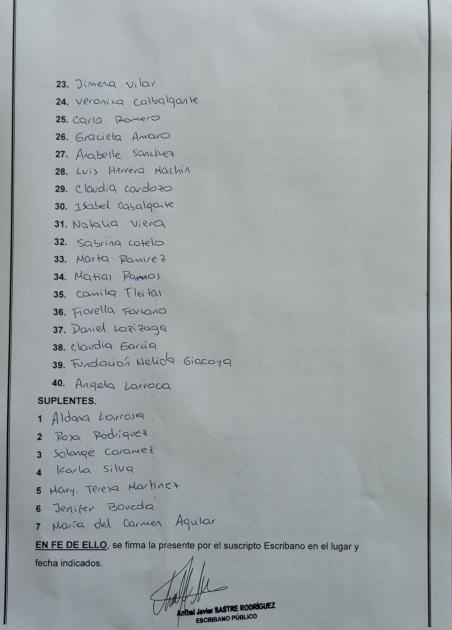 23. Jimena Vilar
24. Veronica Calbalgante
25. Carla Romero
26. Graciela Amaro
27. Anabelle Sanchez
28. Luis Herrera Machin
29. Claudia Cardozo
30. Isabel Casalgarte
31. Natalia Viera
32. Sabrina Cotelo
33. Marta Ramirez
34. Matias Ramos
35. Camila Fleitas
36. Fiorella
37. Daniel Lapizaga
38. Claudia Garcia
39. Fundación Nelida Giacoya
40. Angela Larroca
SUPLENTES.
1 Aldana Larrosa
2 Rosa Rodriguez
3 Solange Caramez
4 Karla Silva
5 Mary. Teresa Martinez
6 Jenifer Boveda
7 María del Carmen Aguilar
EN FE DE ELLO, se firma la presente por el suscripto Escribano en el lugar y
fecha indicados.
Aníbal Javier SASTRE RODRÍGUEZ
ESCRIBANO PÚBLICO